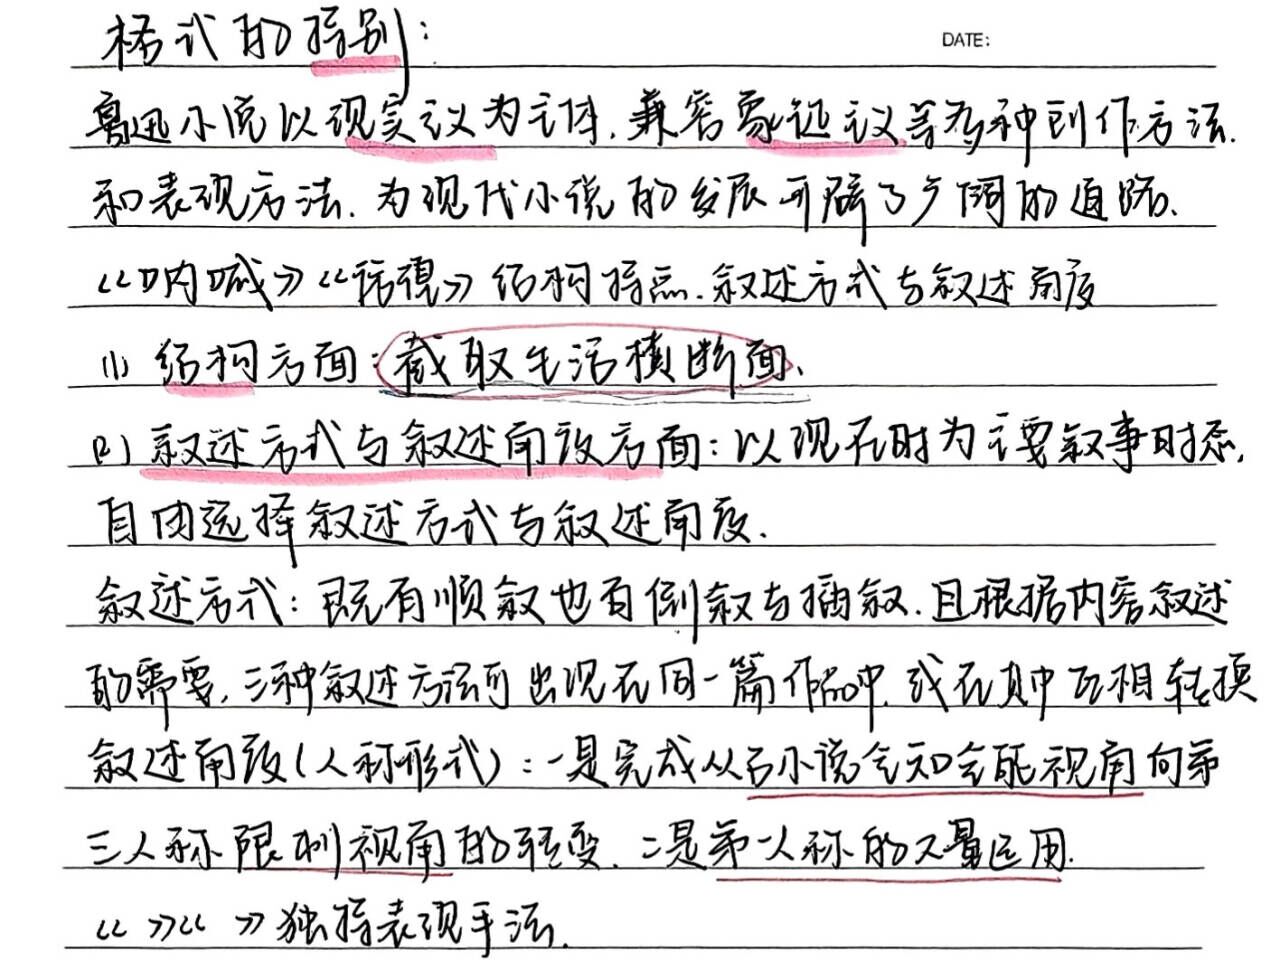 格式的特别：
DATE:
鲁迅小说以现实主义为主体，兼容象征主义等多种创作方法，
和表现方法，为现代小说的发展开辟了广阔的道路。
《呐喊》《彷徨》结构特点，叙述方式与叙述角度
(1) 结构方面：截取生活横断面，
(2) 叙述方式与叙述角度方面：以现在时为主要叙事时态，
自由选择叙述方式与叙述角度．
叙述方式：既有顺叙也有倒叙与插叙，且根据内容叙述
的需要，三种叙述方法可出现在同一篇作品中，或在其中互相转换
叙述角度(人称形式)：一是完成从古小说全知全能视角向第
三人称限制视角的转变，二是第一人称的大量运用．
《 》《 》独特表现手法．